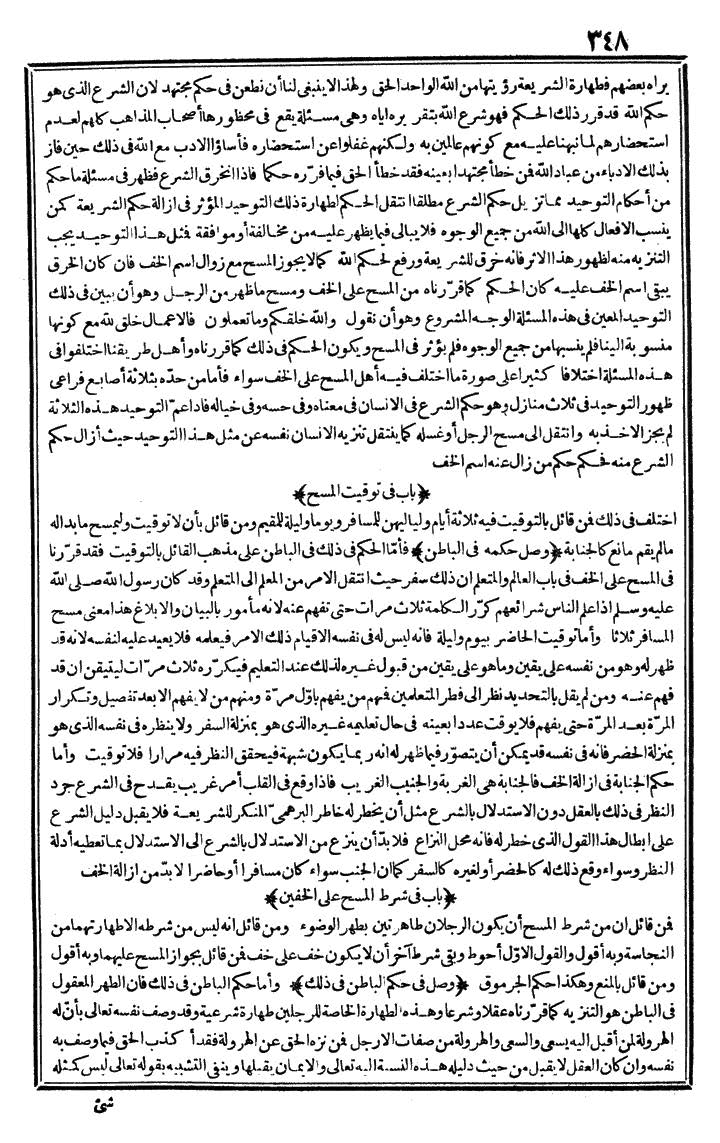 ٣٤٨
يراه بعضهم فطهارة الشريعة رؤيتها من الله الواحد الحق ولهذا لا ينبغى لنا أن نطعن فى حكم مجتهد لان الشرع الذى هو
حكم الله قد قرر ذلك الحكم فهو شرع الله بتقريره اياه وهى مسئلة يقع فى محظورها أصحاب المذاهب كلهم لعدم
استحضارهم لما نبهنا عليه مع كونهم عالمين به ولكنهم غفلوا عن استحضاره فأساؤا الادب مع الله فى ذلك حين فاز
بذلك الادباء من عباد الله فمن خطأ مجتهدا بعينه فقد خطأ الحق فيما قرّره حكما فاذا انخرق الشرع فظهر فى مسئلة ما حكم
من أحكام التوحيد مما تزيل حكم الشرع مطلقا انتقل الحكم لطهارة ذلك التوحيد المؤثر فى ازالة حكم الشريعة كمن
ينسب الافعال كلها الى الله من جميع الوجوه فلا يبالى فيما يظهر عليه من مخالفة أو موافقة فمثل هذا التوحيد يجب
التنزيه منه لظهور هذا الاثر فانه خرق للشريعة ورفع لحكم الله كما لا يجوز المسح مع زوال اسم الخف فان كان الخرق
يبقى اسم الخف عليه كان الحكم كما قرّرناه من المسح على الخف ومسح ما ظهر من الرجل وهو أن يبين فى ذلك
التوحيد المعين فى هذه المسئلة الوجه المشروع وهو أن نقول والله خلقكم وما تعملون فالاعمال خلق لله مع كونها
منسوبة الينا فلم ينسبها من جميع الوجوه فلم يؤثر فى المسح ويكون الحكم فى ذلك كما قررناه وأهل طريقنا اختلفوا فى
هذه المسئلة اختلافا كثيرا على صورة ما اختلف فيه أهل المسح على الخف سواء فأما من حدّه بثلاثة أصابع فراعى
ظهور التوحيد فى ثلاث منازل وهو حكم الشرع فى الانسان فى معناه وفى حسه وفى خياله فاذا عمّ التوحيد هذه الثلاثة
لم يجز الاخذ به وانتقل الى مسح الرجل أو غسله كما ينتقل تنزيه الانسان نفسه عن مثل هذا التوحيد حيث أزال حكم
الشرع منه فحكم حكم من زال عنه اسم الخف
﴿باب فى توقيت المسح﴾
اختلف فى ذلك فمن قائل بالتوقيت فيه ثلاثة أيام ولياليهن للمسافر ويوما وليلة للمقيم ومن قائل بأن لا توقيت وليمسح ما بداله
مالم يقم مانع كالجنابة ﴿وصل حكمه فى الباطن﴾ فأما الحكم فى ذلك فى الباطن على مذهب القائل بالتوقيت فقد قررنا
فى المسح على الخف فى باب العالم والمتعلم ان ذلك سفر حيث انتقل الامر من المعلم الى المتعلم وقد كان رسول الله صلى الله
عليه وسلم اذا علم الناس شرائعهم كرّر الكلمة ثلاث مرات حتى تفهم عنه لانه مأمور بالبيان والابلاغ هذا معنى مسح
المسافر ثلاثا وأما توقيت الحاضر بيوم وليلة فانه ليس له فى نفسه الاقيام ذلك الامر فيعلمه فلا يعيد عليه لنفسه لانه قد
ظهر له وهو من نفسه على يقين وما هو على يقين من قبول غيره لذلك عند التعليم فيكرّره ثلاث مرّات ليتيقن ان قد
فهم عنه ومن لم يقل بالتحديد نظر الى فطر المتعلمين فمنهم من يفهم بأوّل مرّة ومنهم من لا يفهم الا بعد تفصيل وتكرار
المرّة بعد المرّة حتى يفهم فلا يوقت عددا بعينه فى حال تعليمه غيره الذى هو بمنزلة السفر ولا ينظره فى نفسه الذى هو
بمنزلة الحضر فانه فى نفسه قد يمكن أن يتصوّر فيما ظهر له انه ربما يكون شبهة فيحقق النظر فيه مرارا فلا توقيت وأما
حكم الجنابة فى ازالة الخف فالجنابة هى الغربة والجنيب الغريب فاذا وقع فى القلب أمر غريب يقدح فى الشرع جرد
النظر فى ذلك بالعقل دون الاستدلال بالشرع مثل أن يخطر له خاطر البرهمىّ المنكر للشريعة فلا يقبل دليل الشرع
على ابطال هذا القول الذى خطر له فانه محل النزاع فلا بدّ أن ينزع من الاستدلال بالشرع الى الاستدلال بما تعطيه أدلة
النظر وسواء وقع ذلك له كالحضر أو لغيره كالسفر كما ان الجنب سواء كان مسافرا أو حاضرا لا بدّ من ازالة الخف
﴿باب فى شرط المسح على الخفين﴾
فمن قائل ان من شرط المسح أن يكون الرجلان طاهرتين بطهر الوضوء ومن قائل انه ليس من شرطه الاطهارتهما من
النجاسة وبه أقول والقول الاوّل أحوط وبقى شرط آخر أن لا يكون خف على خف فمن قائل بجواز المسح عليهما وبه أقول
ومن قائل بالمنع وهكذا حكم الجرموق ﴿وصل فى حكم الباطن فى ذلك﴾ وأما حكم الباطن فى ذلك فان الطهر المعقول
فى الباطن هو التنزيه كما قرّرناه عقلا وشرعا وهذه الطهارة الخاصة للرجلين طهارة شرعية وقد وصف نفسه تعالى بأنّ له
الهرولة لمن أقبل اليه يسعى والسعى والهرولة من صفات الارجل فمن نزه الحق عن الهرولة فقد أكذب الحق فيما وصف به
نفسه وان كان العقل لا يقبل من حيث دليله هذه النسبة اليه تعالى والايمان يقبلها وينفى التشبيه بقوله تعالى ليس كمثله
شئ